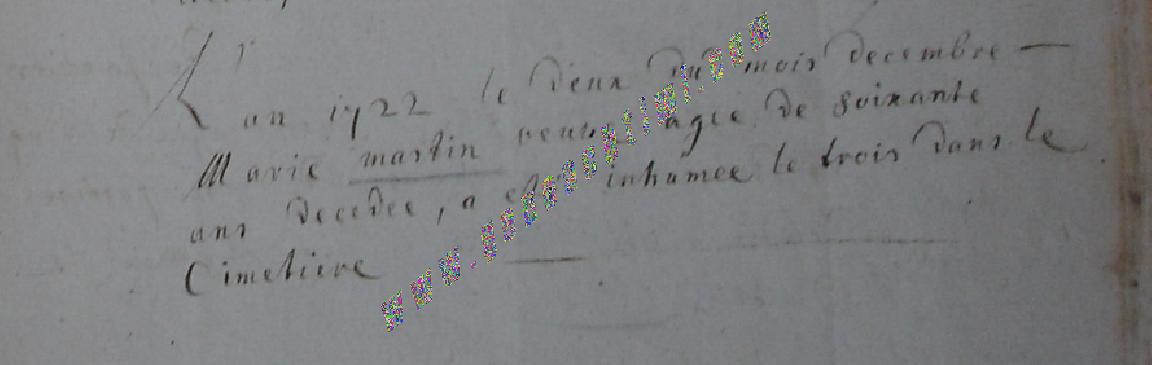 L'an 1722 le deux du mois decembre —
Marie martin veuve agée de soixante
ans decedee, a esté inhumée le trois dans le
Cimetiere